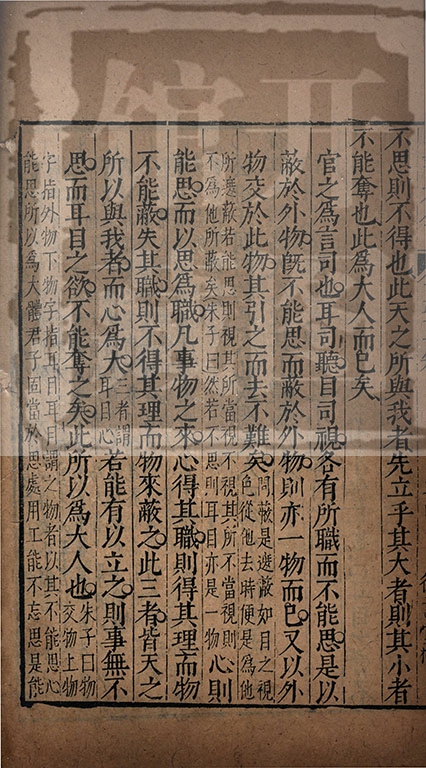 不思則不得也此天之所與我者先立乎其大者則其小者
不能奪也此爲大人而已矣
官之爲言司也耳司聽目司視各有所職而不能思是以
蔽於外物旣不能思而蔽於外物則亦一物而已又以外
物交於此物其引之而去不難矣問蔽是遮蔽如目之視色從他去時便是爲他
所遮蔽若能思則視其所當視不視其所不當視則不爲他所蔽矣朱子曰然若不思則耳目亦是一物心則
能思而以思爲職凡事物之來心得其職則得其理而物
不能蔽失其職則不得其理而物來蔽之此三者皆天之
所以與我者而心爲大三者謂耳目心若能有以立之則事無不
思而耳目之欲不能奪之矣此所以爲大人也朱子曰物交物上物
字指外物下物字指耳目耳目謂之物者以其不能思心
能思所以爲大體君子固當於思處用工能不忘思是能